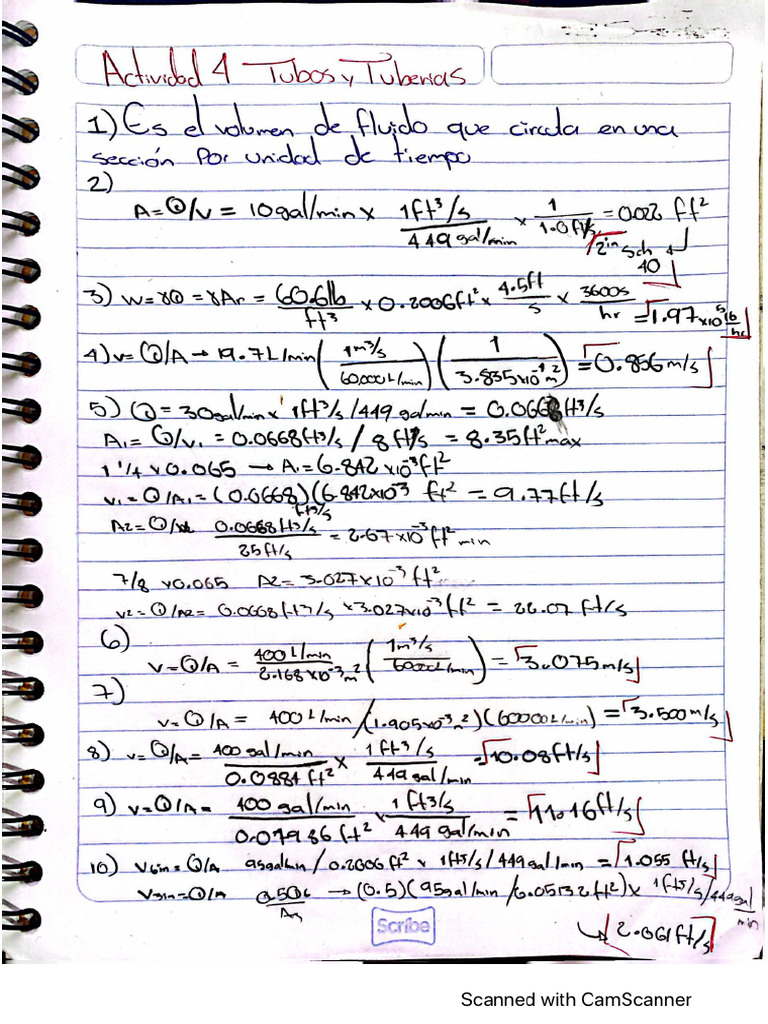 Actividad 4 Tubos y Tuberias
1) Es el volumen de fluido que circula en una
sección Por unidad de tiempo
2)
A = Q/v = 10gal/min x 1ft³/s / 449 gal/min x 1 / 1.0 ft/s = 0.022 ft²
2in Sch 40
3) W = γQ = γAv = 60.6lb / ft³ x 0.2006ft² x 4.5ft / s x 3600s / hr = 1.97x10⁵ lb/hr
4) v = Q/A → 19.7 L/min ( 1m³/s / 60000 L/min ) ( 1 / 3.835x10⁻⁴ m² ) = 0.856 m/s
5) Q = 30gal/min x 1ft³/s / 449 gal/min = 0.0668 ft³/s
A₁ = Q/v₁ = 0.0668ft³/s / 8 ft/s = 8.35ft² max
1 1/4 x 0.065 → A₁ = 6.842 x10⁻³ ft²
v₁ = Q/A₁ = (0.0668)(6.842x10⁻³ ft² = 9.77ft/s
ft³/s
A₂ = 0.0668ft³/s / 25ft/s = 2.67 x10⁻³ ft² min
7/8 x 0.065 A₂ = 3.027x10⁻³ ft²
v₂ = Q/A₂ = 0.0668 ft³/s x 3.027x10⁻³ ft² = 22.07 ft/s
6)
v = Q/A = 400 L/min / 2.168 x10⁻³ m² ( 1m³/s / 60000L/min ) = 3.075 m/s
7)
v = Q/A = 400 L/min /(1.905x10⁻³ m²)(60000 L/min) = 3.500 m/s
8) v = Q/A = 400 gal/min / 0.0884 ft² x 1 ft³/s / 449 gal/min = 10.08ft/s
9) v = Q/A = 400 gal/min / 0.07986 ft² x 1 ft³/s / 449 gal/min = 11.16 ft/s
10) V6in = Q/A 95gal/min / 0.2006 ft² x 1ft³/s / 449 gal/min = 1.055 ft/s
V3in = Q/A → (0.5)(95gal/min / 0.05132ft²) x 1ft³/s / 449 gal/min
2.061ft/s
Scribe
Scanned with CamScanner